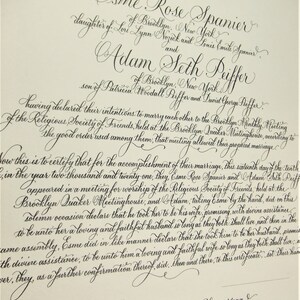 Esme Rose Spanier
of Brooklyn, New York
daughter of Lori Lynn and Louis Emile Spanier
and
Adam Seth Puffer
of Brooklyn, New York
son of Patricia Woodall Puffer and Daniel George Puffer
having declared their intentions to marry each other to the Brooklyn Monthly Meeting
of the Religious Society of Friends, held at the Brooklyn Quaker Meetinghouse, according to
the good order used among them, that meeting allowed their proposed marriage.
Now this is to certify that for the accomplishment of this marriage, this sixteenth day of the tenth
in the year two thousand and twenty one, they, Esme Rose Spanier and Adam Seth Puffer
appeared in a meeting for worship of the Religious Society of Friends, held at the
Brooklyn Quaker Meetinghouse, and Adam, taking Esme by the hand, did in this
solemn occasion declare that he took her to be his wife, promising with divine assistance,
to be unto her a loving and faithful husband so long as they both shall live; and then in the
same assembly, Esme did in like manner declare that she took him to be her husband, promising
with divine assistance, to be unto him a loving and faithful wife so long as they both shall live;
they, as a further confirmation thereof, did, then and there, to this certificate, set their hands